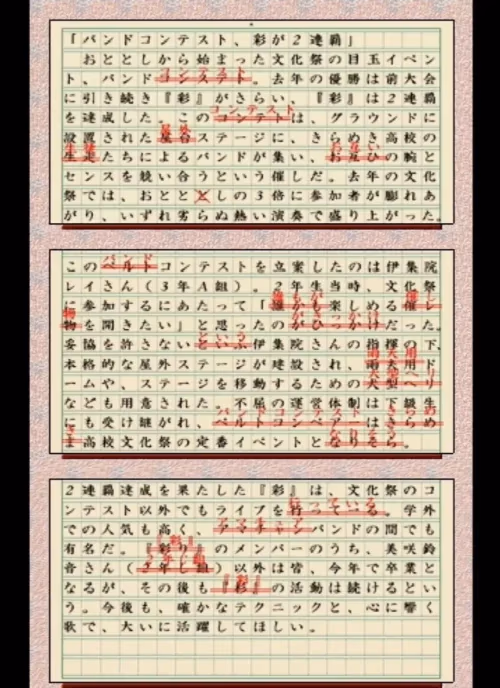 「バンドコンテスト、彩が2連覇」
おととしから始まった文化祭の目玉イベン
ト、バンドコンテスト。去年の優勝は前大会
に引き続き『彩』がさらい、『彩』は2連覇
を達成した。このコンテストは、グラウンドに
設置された屋外ステージに、きらめき高校の
生徒たちによるバンドが集い、お互いの腕と
センスを競い合うという催しだ。去年の文化
祭では、おととしの3倍に参加者が膨れあ
がり、いずれ劣らぬ熱い演奏で盛り上がった。
このバンドコンテストを立案したのは伊集院
レイさん(3年A組)。2年生当時、文化祭
に参加するにあたって「誰もが楽しめる催し
物を開きたい」と思ったのがきっかけだった。
妥協を許さないという伊集院さんの指揮の下、
本格的な屋外ステージが建設され、雨天用ド
ームや、ステージを移動するための大型ヘリ
なども用意された。不屈の運営体制は下級生
にも受け継がれ、バンドコンテストはきらめ
き高校文化祭の定番イベントとなりそうだ。
2連覇達成を果たした『彩』は、文化祭のコ
ンテスト以外でもライブを行っている。学外
での人気も高く、アマチュアバンドの間でも
有名だ。『彩』のメンバーのうち、美咲鈴
音さん(2年 組)以外は皆、今年で卒業と
なるが、その後も『彩』の活動は続けるとい
う。今後も、確かなテクニックと、心に響く
歌で、大いに活躍してほしい。